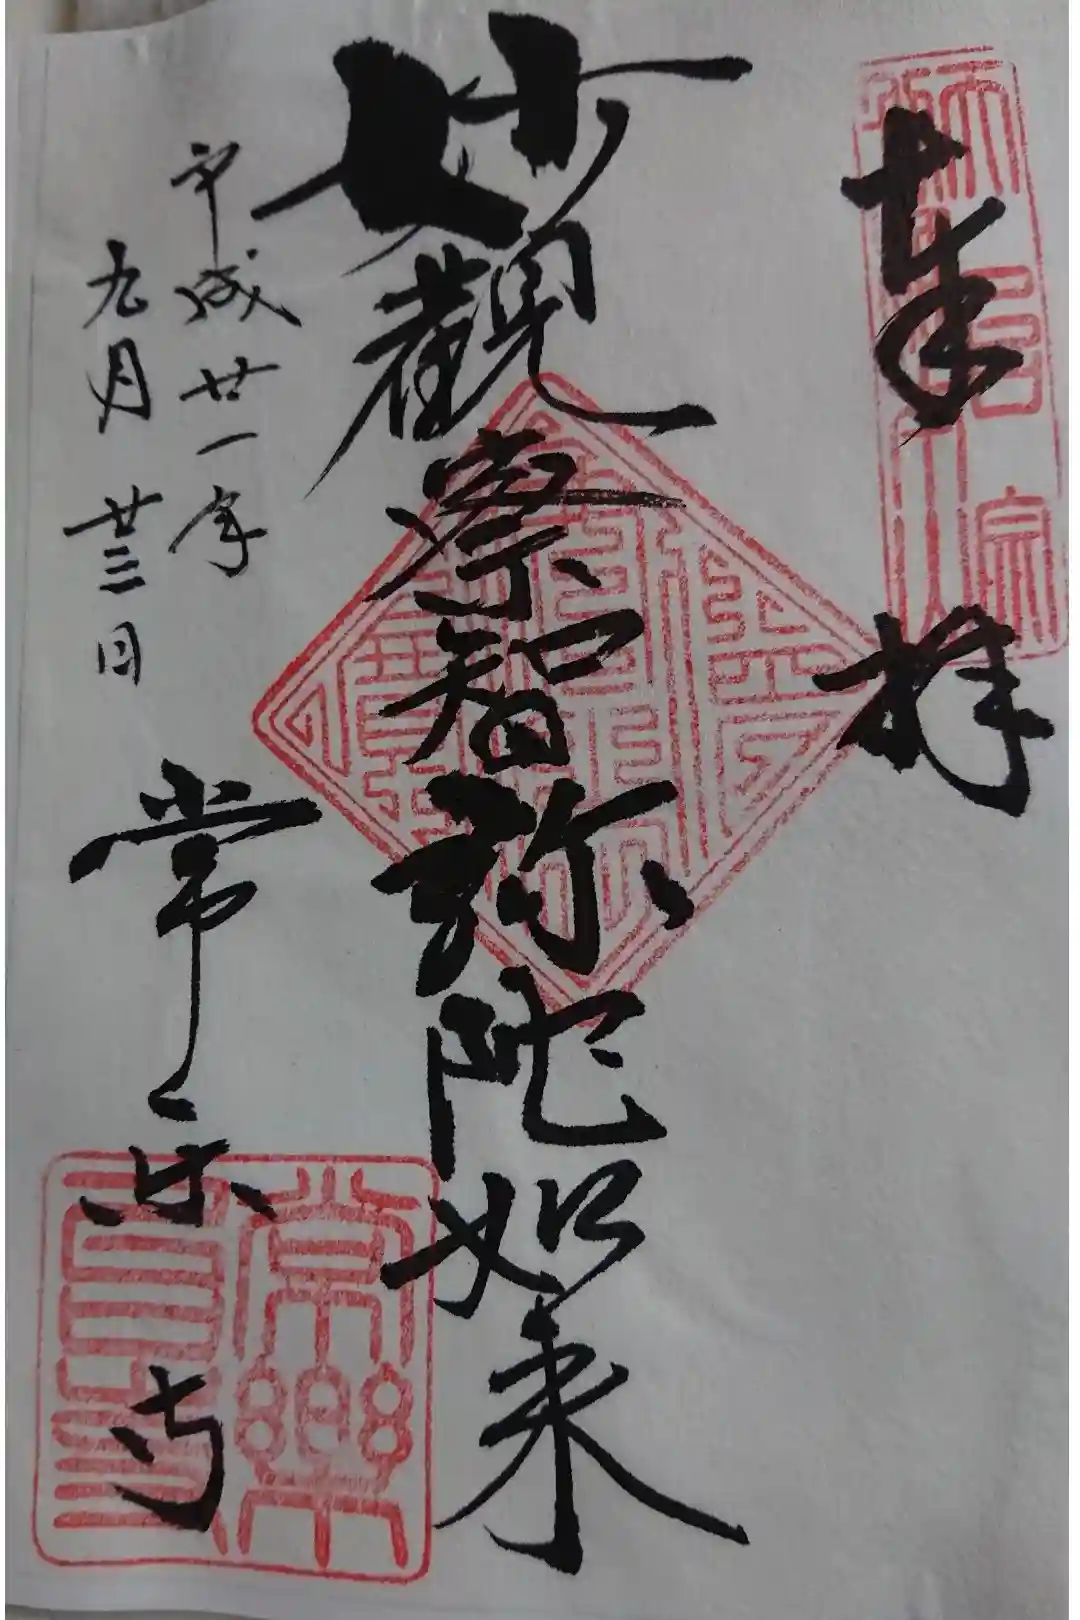 奉拝
妙観察智弥陀如来
平成廿一年
九月廿三日
常楽寺